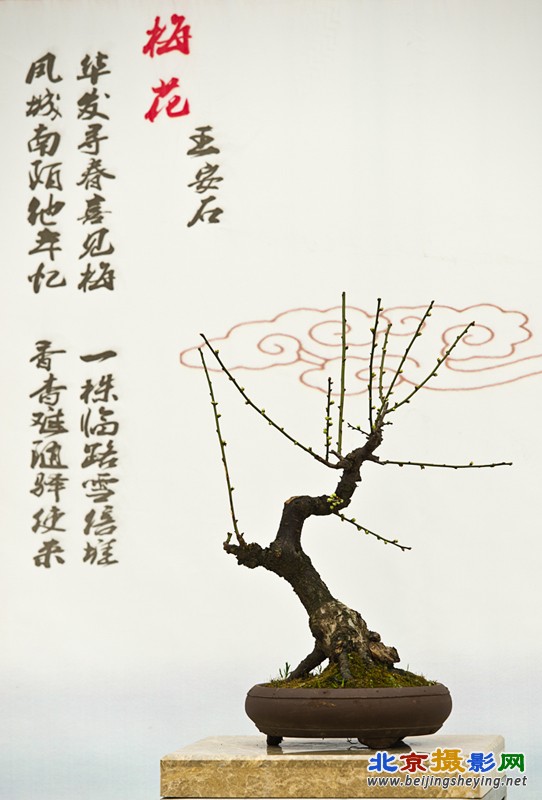 梅花
王安石
华发寻春喜见梅
一株临路雪倍堆
凤城南陌他年忆
香杳难随驿使来
北京摄影网
www.beijingsheying.net